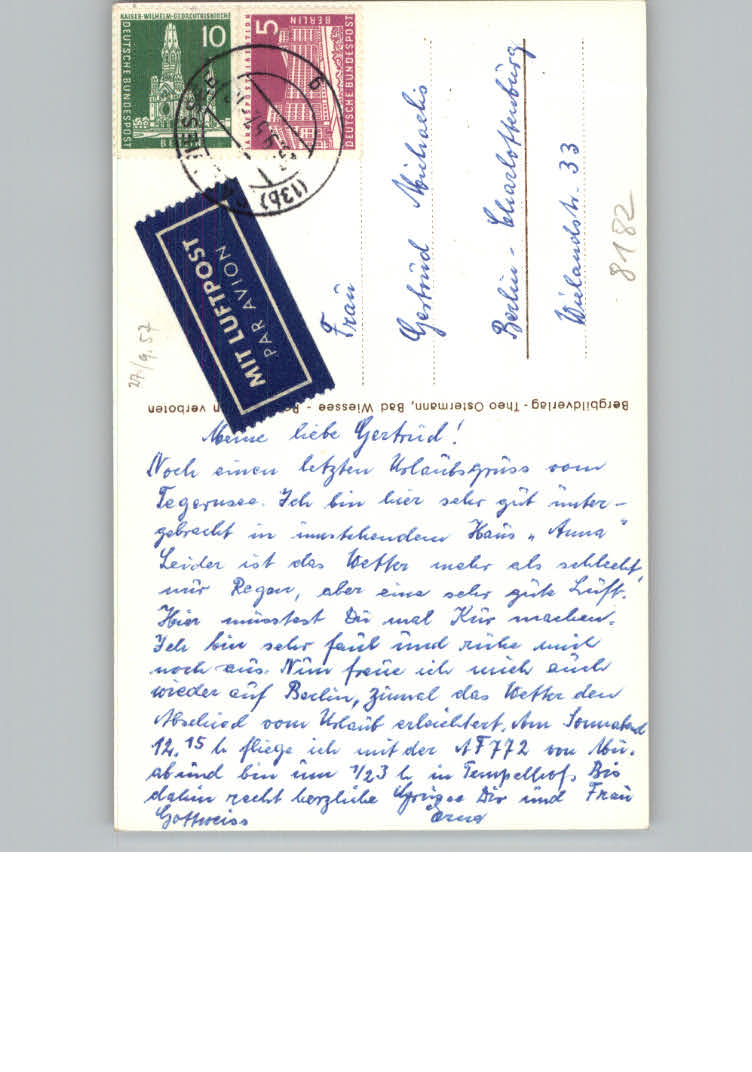 10
DEUTSCHE BUNDESPOST
KAISER-WILHELM-GEDÄCHTNISKIRCHE
5
BERLIN
DEUTSCHE BUNDESPOST
(13b)
b
MIT LUFTPOST
PAR AVION
27./9.57
Frau
Gertrud Michaelis
Berlin-Charlottenburg
Wielandstr. 33
8182
Bergbildverlag - Theo Ostermann, Bad Wiessee - verboten
Meine liebe Gertrud!
Noch einen letzten Urlaubsgruss vom
Tegernsee. Ich bin hier sehr gut unter-
gebracht in umstehendem Haus „Anna"
Leider ist das Wetter mehr als schlecht,
nur Regen, aber eine sehr gute Luft.
Hier müsstest Du mal Kur machen.
Ich bin sehr faul und ruhe mich
noch aus. Nun freue ich mich auch
wieder auf Berlin, zumal das Wetter den
Abschied vom Urlaub erleichtert. Am Sonnabend
12.15 h fliege ich mit der AF772 von Mü.
ab und bin um 1/23 h in Tempelhof. Bis
dahin recht herzliche Grüsse Dir und Frau
Gottweiss Erna